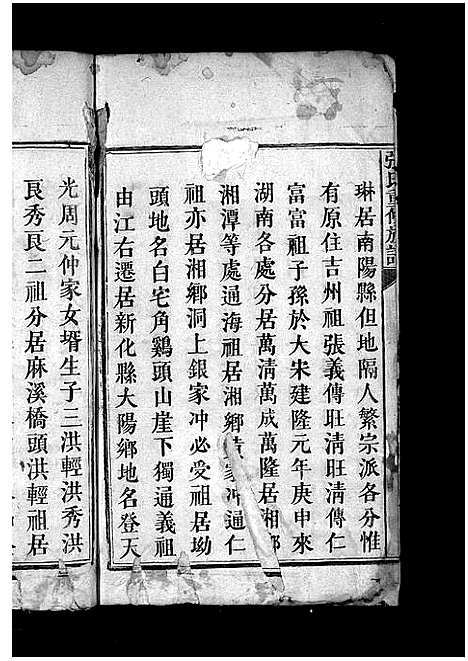 張氏重修族譜
琳居南陽縣但地隔人繁宗派各分惟
有原住吉州祖張義傳旺清旺清傳仁
富富祖子孫於大宋建隆元年庚申來
湖南各處分居萬清萬成萬隆居湘鄉
湘潭等處通海祖居湘鄉家冲通仁
祖亦居湘鄉洞上銀家冲必受祖居坳
頭地名白宅角鷄頭山崖下獨通義祖
由江右遷居新化縣大陽鄉地名登天
光周元仲家女壻生子三洪輕洪秀洪
良秀良二祖分居麻溪橋頭洪輕祖居